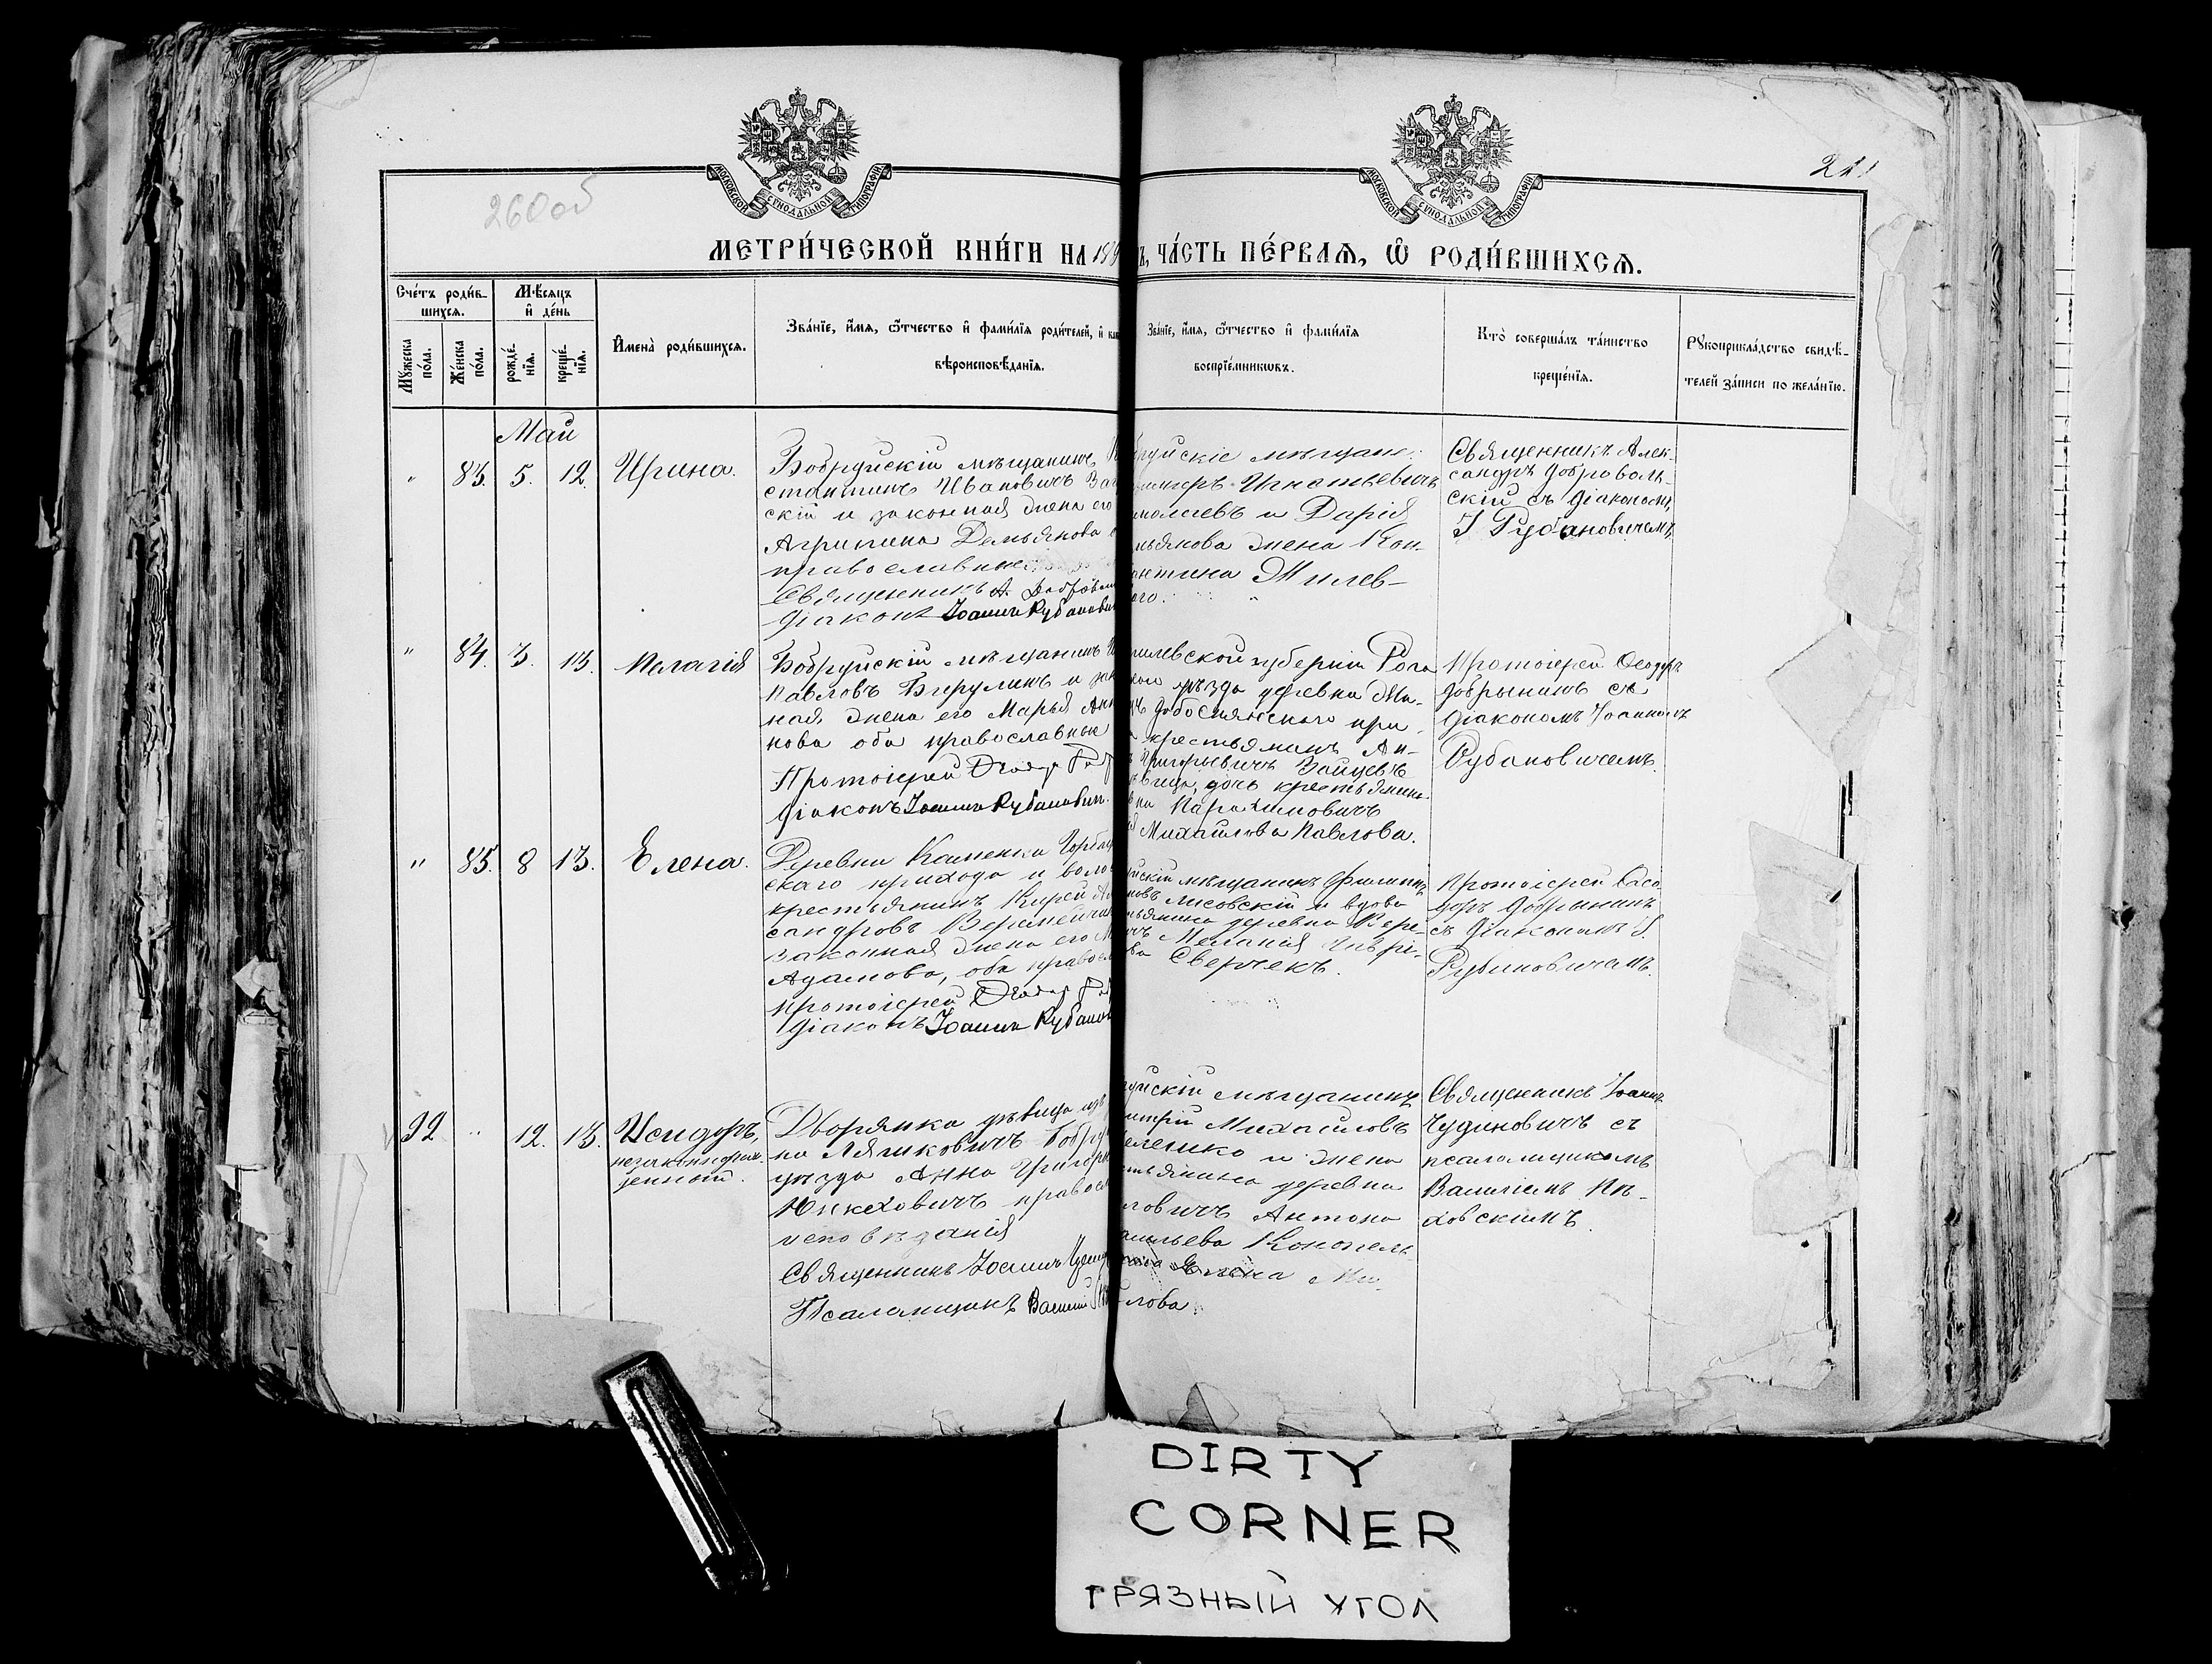 260 об
МОСКОВСКОЙ СУНОДАЛЬНОЙ ТИПОГРАФІИ
МОСКОВСКОЙ СУНОДАЛЬНОЙ ТИПОГРАФІИ
МЕТРИ́ЧЕСКОЙ КНИ́ГИ НА 189
Ъ, ЧА́СТЬ ПЕ́РВАѦ, Ѡ҆ РОДИ́ВШИХСѦ.
Сче́тъ роди́в-
шихсѧ.
Мѣ́сѧцъ
и҆ де́нь
Мꙋжеска
по́ла.
Же́нска
по́ла.
рожде́-
нїѧ.
креще́-
нїѧ.
И҆мена̀ роди́вшихсѧ.
Зва́нїе, и҆́мѧ, ѻ҆́тчество и҆ фами́лїѧ роди́телей, и҆
вѣроисповѣ́данїѧ.
Зва́нїе, и҆́мѧ, ѻ҆́тчество и҆ фами́лїѧ
воспрїе́мникѡвъ.
Кто̀ соверша́лъ та́инство
креще́нїѧ.
Рꙋкоприкла́дство свидѣ́-
телей за́писи по жела́нїю.
Май
" 83. 5. 12. Ирина.
Бобруйскій мѣщанинъ
стантинъ Ивановичъ
скій и законная жена его
Агрипина Демьянова
православные
Священникъ А. Добровол
Діаконъ Іоаннъ Рубанови
бруйскіе мѣщане:
Игнатьевичъ
молаевъ и Дарія
мьянова жена Кон-
антина Милев-
аго.
Священникъ Алек-
сандръ Доброволь-
скій съ діакономъ
І Рубановичемъ.
" 84. 3. 13. Пелагія
Бобруйскій мѣщанинъ
Павловъ и зак
ная жена его Марья Ан
нова оба православные
Протоіерей Ѳеодор
Діаконъ Іоаннъ Рубанович.
гилевской губерніи Рога
каго уѣзда деревни Ма-
Добоснянскаго при-
крестьянинъ Ан-
Григорьевичъ Зайцевъ
вица, дочь крестьянина
Парахимовичъ
Михайлова Павлова.
Протоіерей Ѳеодоръ
Добрынинъ съ
діакономъ Іоанномъ
Рубановичемъ.
" 85. 8 13. Елена.
Деревни Каменки Горба
скаго прихода и воло
крестьянинъ Кирей Ал
сандровъ Веремейчи
законная жена его М
Адамова, оба правосл
Протоіерей Ѳеодор
Діаконъ Іоаннъ Рубанов
уйскій мѣщанинъ Филиппъ
новъ Лисовскій и вдова
тьянина деревни Вере-
Меланія Гаврі-
ва Сверчекъ.
Протоіерей Ѳео-
доръ Добрынинъ
съ Діакономъ І.
Рубановичемъ.
92 " 12. 13. Исидоръ,
незаконнорож-
денный.
Дворянка дѣвица изъ
на Ляшковичъ Бобру
уѣзда Анна Григорь
Юнеховичъ правосл
исповѣданія
Священникъ Іоаннъ Чудин
Псаломщикъ Василій
уйскій мѣщанинъ
итрій Михайловъ
еленко и жена
стьянина деревни
ловичъ Антона
асильева Конопель-
Елена Ми-
лова.
Священникъ Іоаннъ
Чудиновичъ съ
псаломщикомъ
Василіемъ Пѣ-
ховскимъ.
DIRTY
CORNER
ГРЯЗНЫЙ УГОЛ